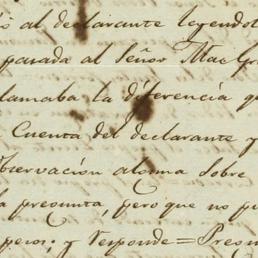 al declarante leyendol
pasada al Señor Mac Gr
lamaba la diferencia q
Cuenta del declarante y
bservación alguna sobre
a pregunta, pero que no p
peso; y Responde = Pregu